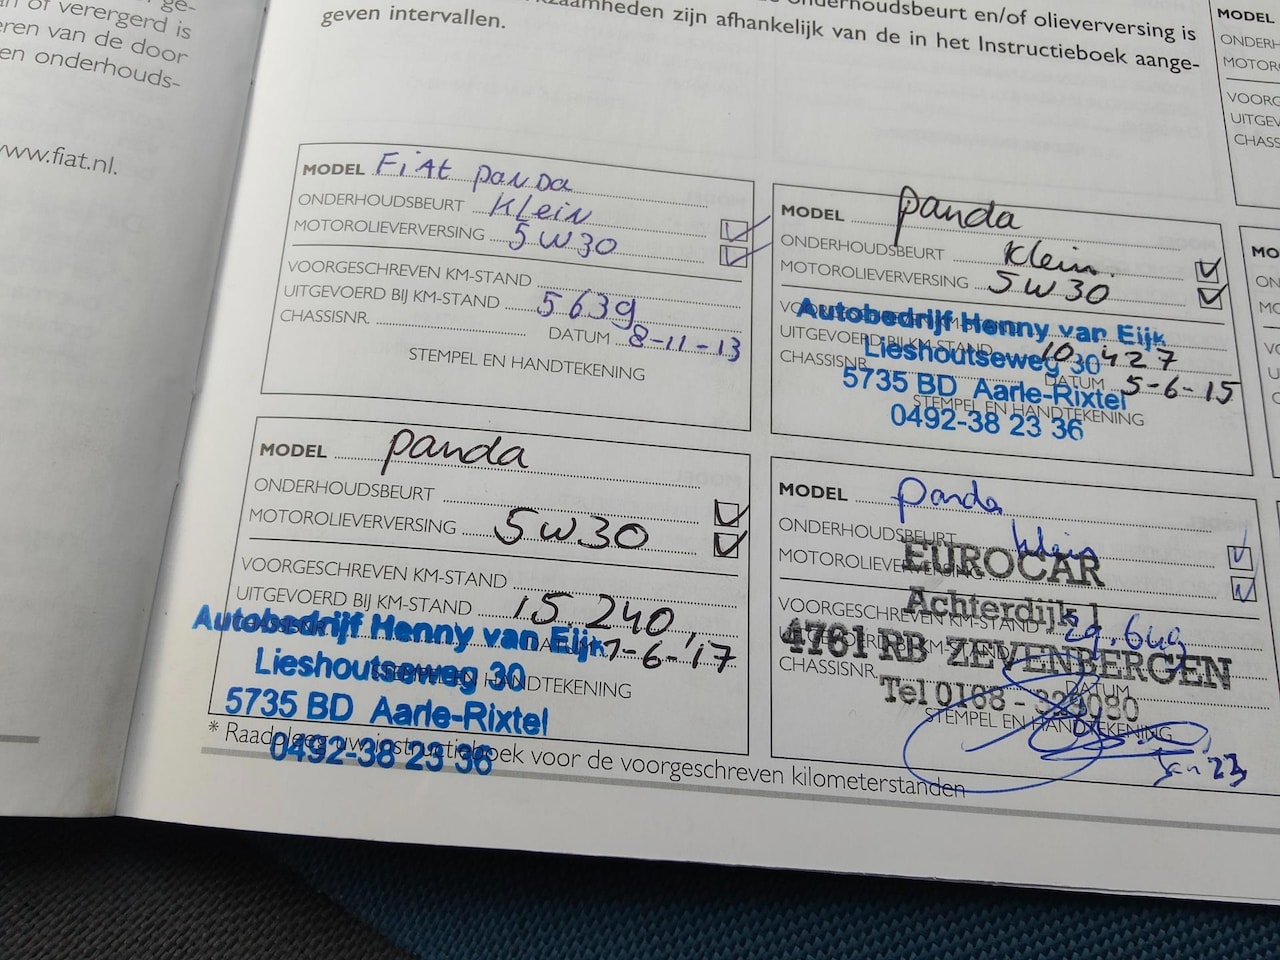 n of verergerd is
eren van de door
en onderhouds-
www.fiat.nl.
onderhoudsbeurt en/of olieverversing is
zaamheden zijn afhankelijk van de in het Instructieboek aange-
geven intervallen.
MODEL Fiat panda
ONDERHOUDSBEURT Klein
MOTOROLIEVERVERSING 5W30
VOORGESCHREVEN KM-STAND
UITGEVOERD BIJ KM-STAND 5639
CHASSISNR. DATUM 8-11-13
STEMPEL EN HANDTEKENING
MODEL panda
ONDERHOUDSBEURT Klein.
MOTOROLIEVERVERSING 5W30
Autobedrijf Henny van Eijk
UITGEVOERD BIJ KM-STAND 10.427
Lieshoutseweg 30
CHASSISNR. DATUM 5-6-15
5735 BD Aarle-Rixtel
STEMPEL EN HANDTEKENING
0492-38 23 36
MODEL panda
ONDERHOUDSBEURT
MOTOROLIEVERVERSING 5W30
VOORGESCHREVEN KM-STAND
UITGEVOERD BIJ KM-STAND 15.240
Autobedrijf Henny van Eijk
DATUM 7-6-'17
Lieshoutseweg 30
STEMPEL EN HANDTEKENING
5735 BD Aarle-Rixtel
0492-38 23 36
MODEL Panda
ONDERHOUDSBEURT klein
MOTOROLIEVERVERSING
EUROCAR
Achterdijk 1
VOORGESCHREVEN KM-STAND
4761 RB ZEVENBERGEN
CHASSISNR.
DATUM
Tel 0168 - 329080
STEMPEL EN HANDTEKENING
* Raadpleeg uw instructieboek voor de voorgeschreven kilometerstanden
MODEL
ONDERH
MOTOR
VOORG
UITGEV
CHASS
MO